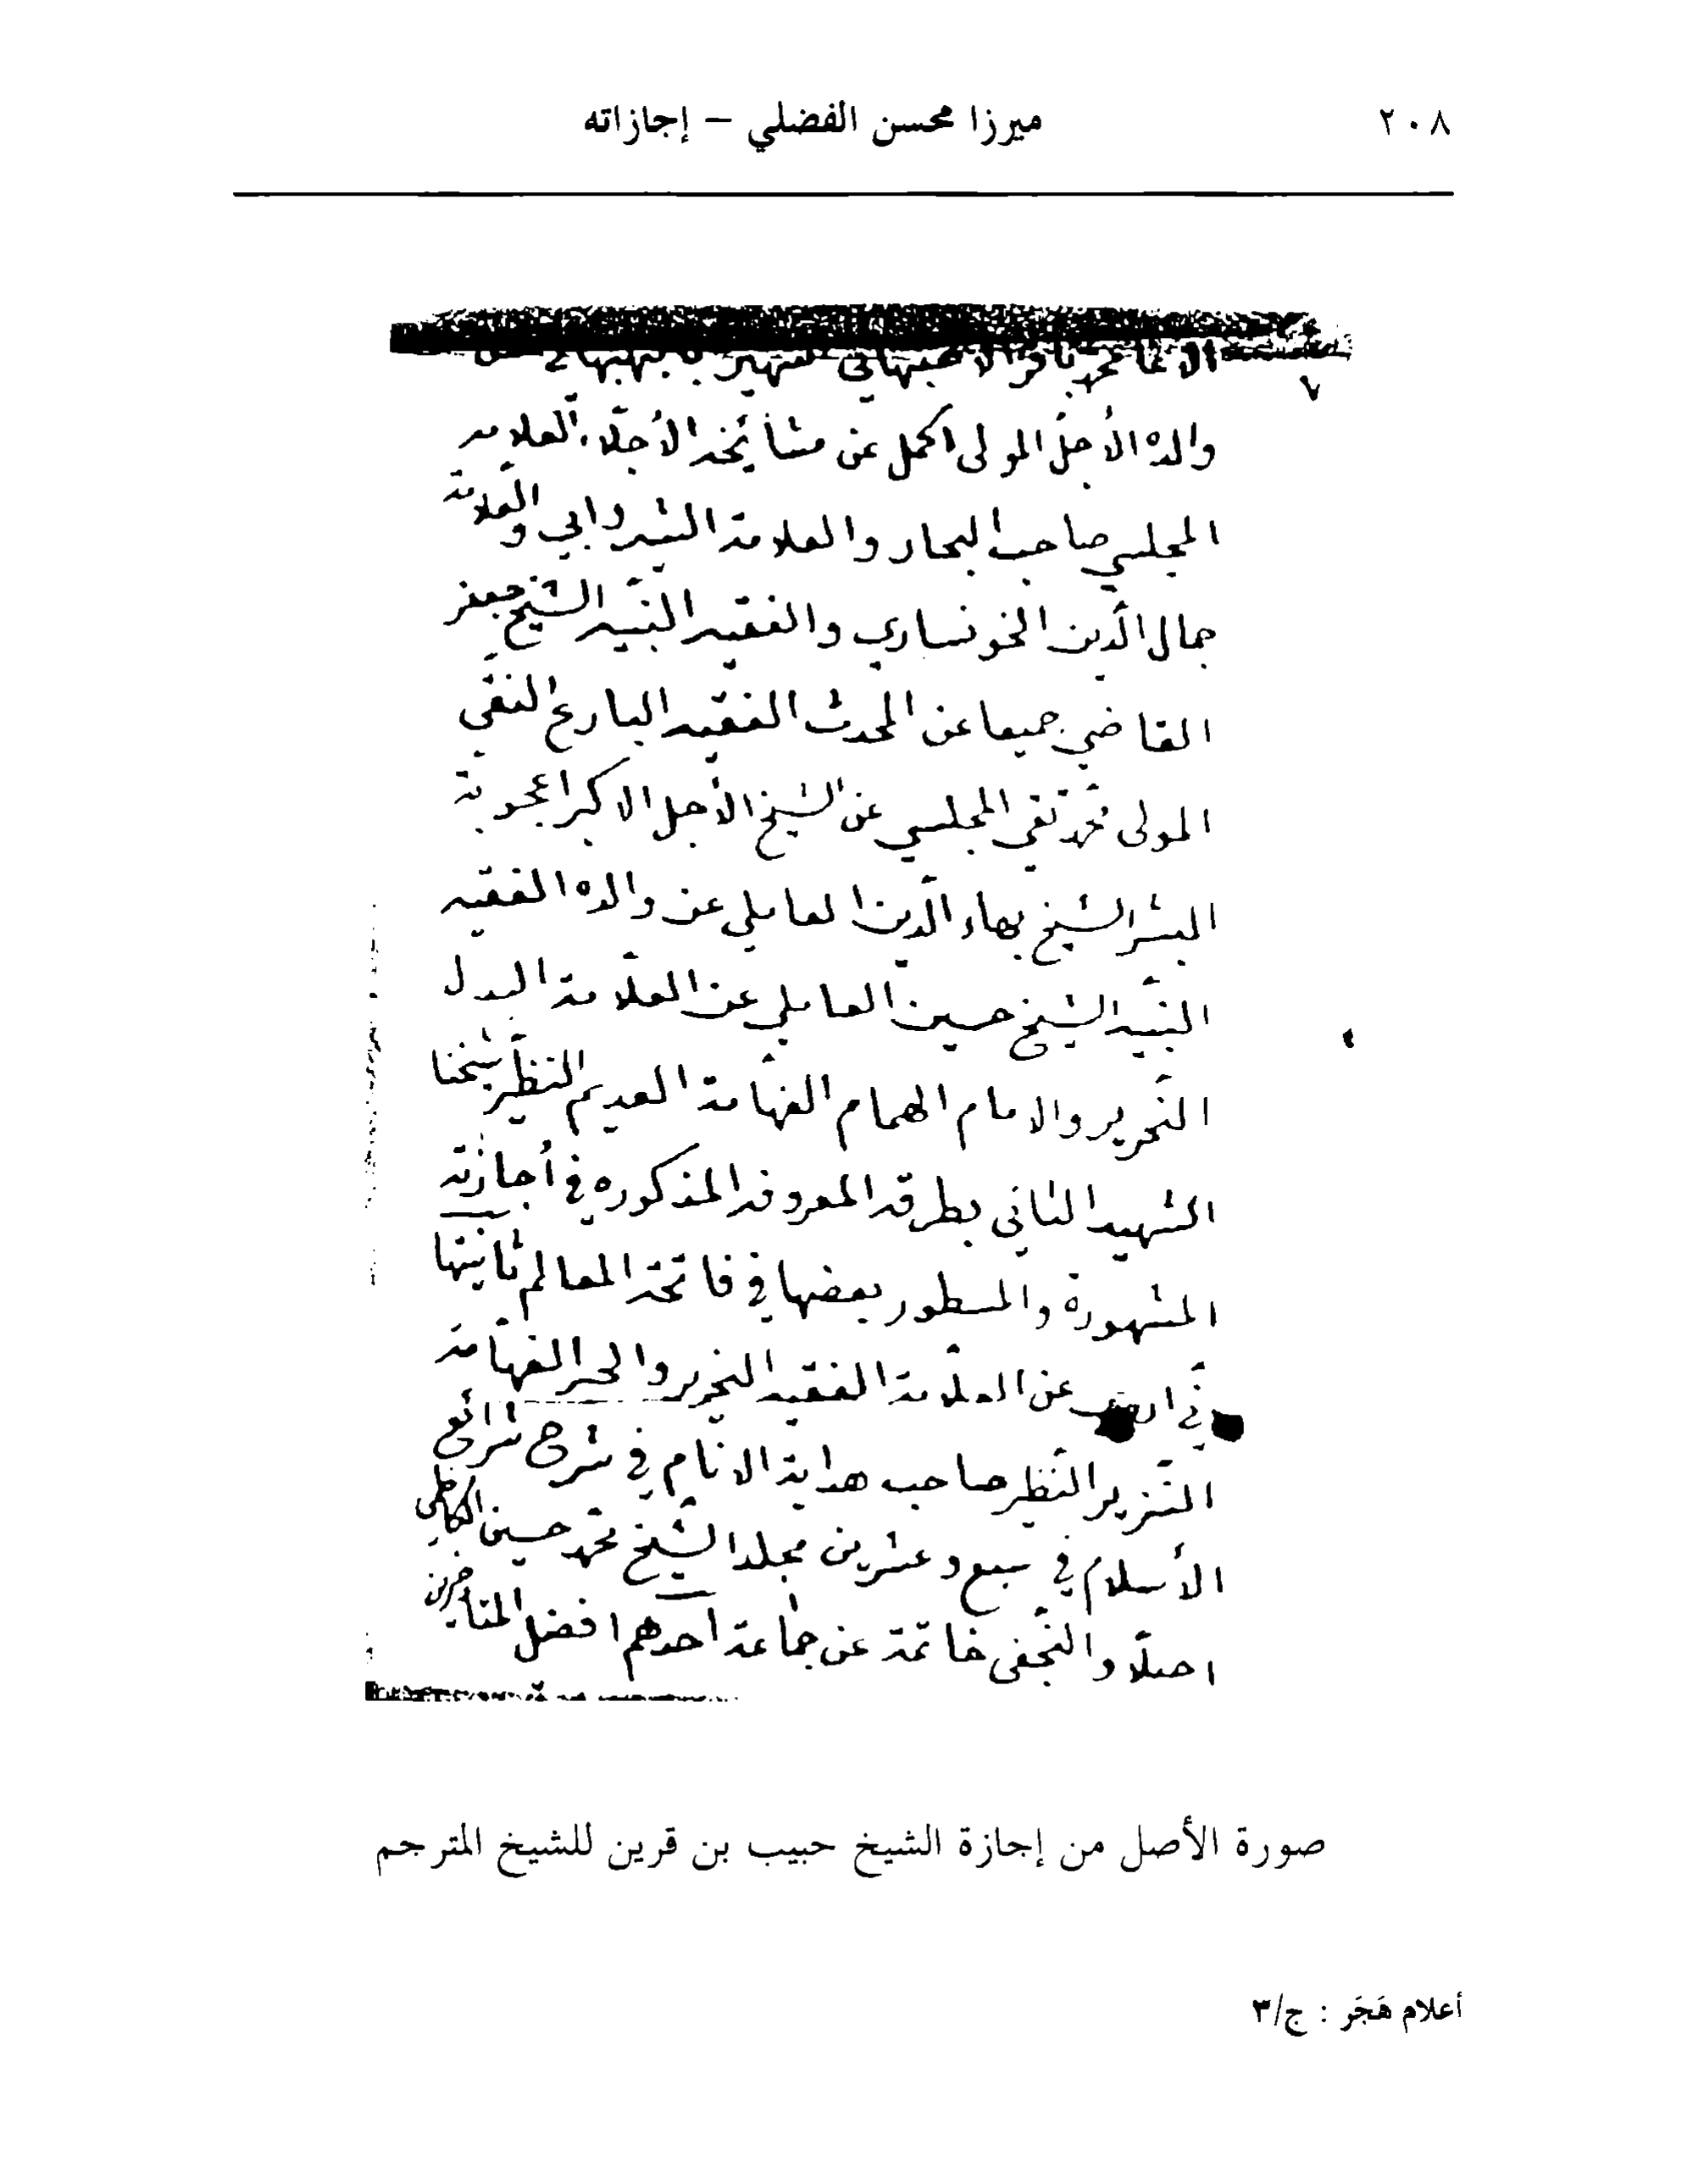 ٢٠٨
ميرزا محسن الفضلي – إجازاته
محمد باقر
والده الأجلّ المولى اكمل عن مشائخه الأجلّاء العلامه
المجلسي صاحب البحار والعلامة الشيرواني والعلامة
جمال الدّين الخونساري والفقيه النبيه الشيخ جعفر
القاضي جميعا عن المحدث الفقيه البارع التقي
المولى محمّد تقي المجلسي عن الشيخ الأجل الاكبر اعجوبة
البشر الشيخ بهاء الدّين العاملي عن والده الفقيه
النبيه الشيخ حسين العاملي عن العلّامة البدل
النحرير والامام الهمام الفهّامة العديم النظير شيخنا
الشهيد الثاني بطرقه المعروفه المذكوره في أجازته
المشهورة والمسطور بعضها في فاتحة المعالم ثانيتها
عن العلّامة الفقيه النحرير والحبر الفهّامة
صاحب هداية الانام في شرح شرائع
الأسلام في سبع وعشرين مجلدا الشّيخ محمّد حسين الكاظمي
اصلًا والنّجفي خاتمة عن جماعة أحدهم افضل المتاخرين
صورة الأصل من إجازة الشيخ حبيب بن قرين للشيخ المترجم
أعلام هَجَر : ج/٣